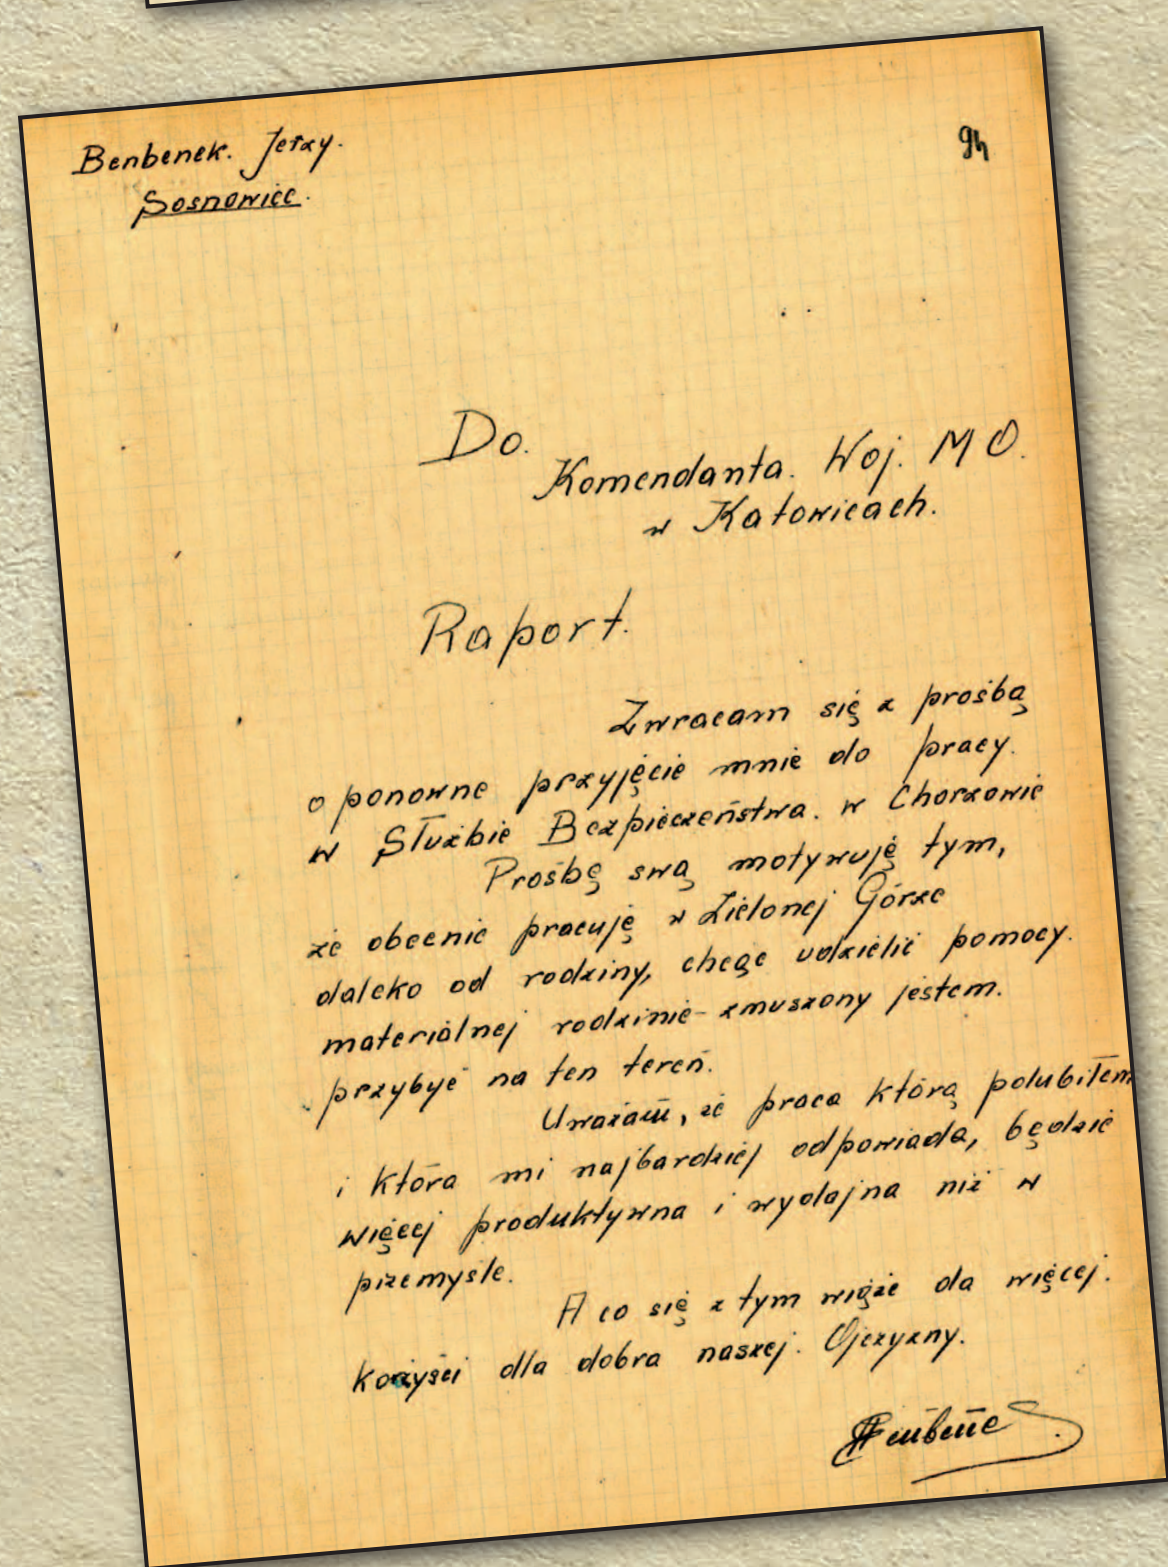 Benbenek. Jerzy.
Sosnowiec.
94
Do.
Komendanta. Woj. M O.
w Katowicach.
Raport.
Zwracam się z prośbą
o ponowne przyjęcie mnie do pracy.
w Służbie Bezpieczeństwa. w Chorzowie
Prośbę swą motywuję tym,
że obecnie pracuję w Zielonej Górze
daleko od rodziny, chcąc udzielić pomocy.
materialnej rodzinie - zmuszony jestem.
przybyć na ten teren.
Uważam, że praca którą polubiłem
i która mi najbardziej odpowiada, będzie
więcej produktywna i wydajna niż w
przemyśle.
A co się z tym wiąże da więcej.
korzyści dla dobra naszej. Ojczyzny.